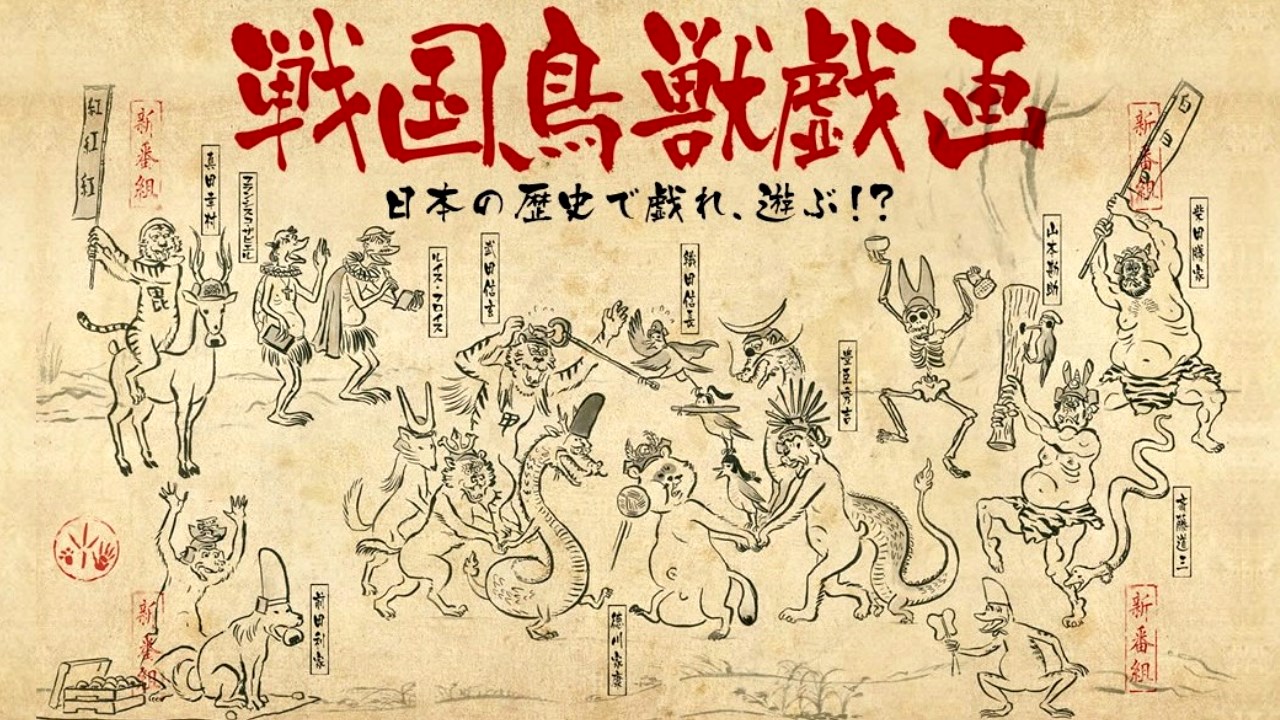 戦国鳥獣戯画
日本の歴史で戯れ、遊ぶ!?
紅紅紅
新番組
真田幸村
フランシスコ・ザビエル
ルイス・フロイス
武田信玄
織田信長
豊臣秀吉
山本勘助
新番組
柴田勝家
斎藤道三
新番組
前田利家
徳川家康
新番組
毘